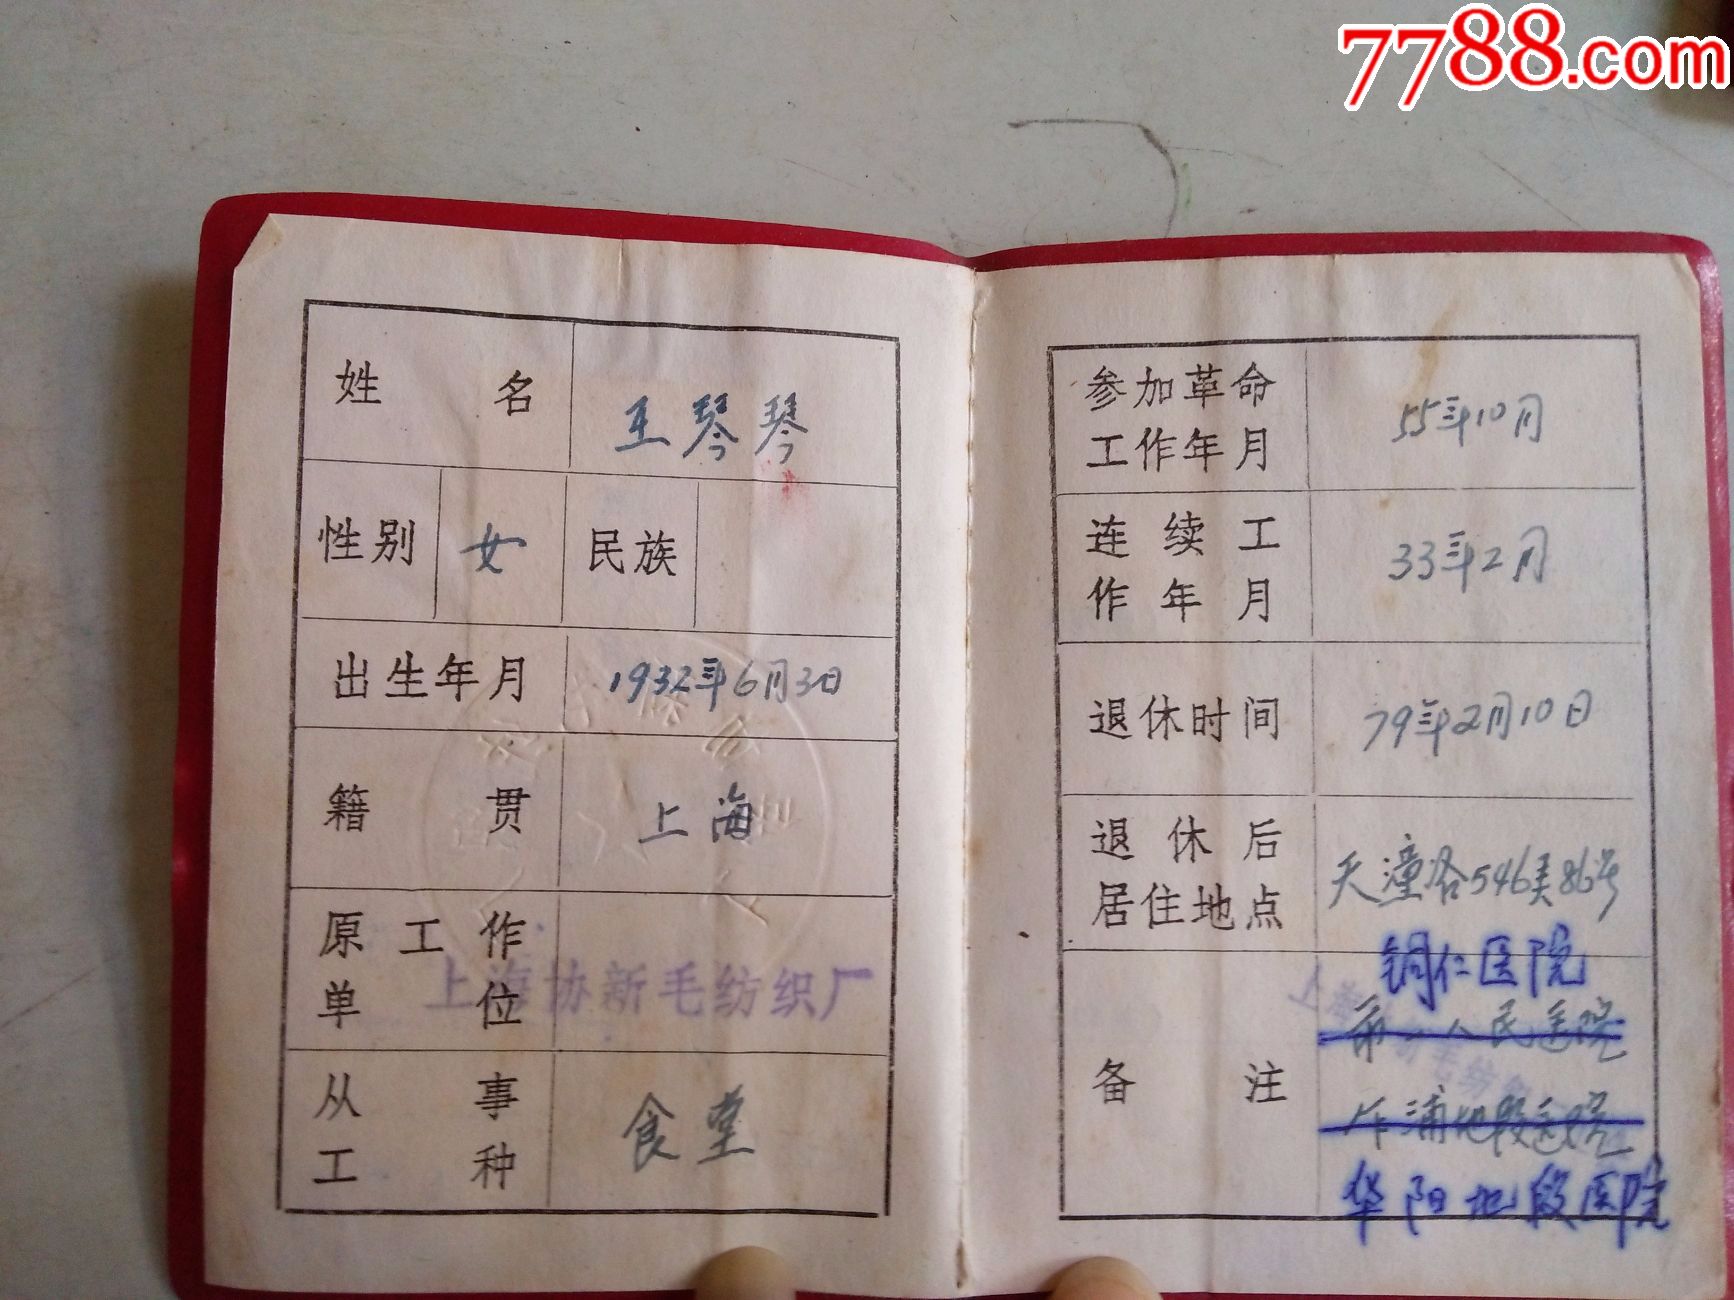 7788.com
姓 名
王琴琴
性别
女
民族
出生年月
1932年6月3日
籍 贯
上海
原工作
单 位
上海协新毛纺织厂
从 事
工 种
食堂
参加革命
工作年月
55年10月
连续工
作年月
33年2月
退休时间
79年2月10日
退休后
居住地点
天潼路546弄86号
备 注
铜仁医院
市一人民医院
地段医院
华阳地段医院